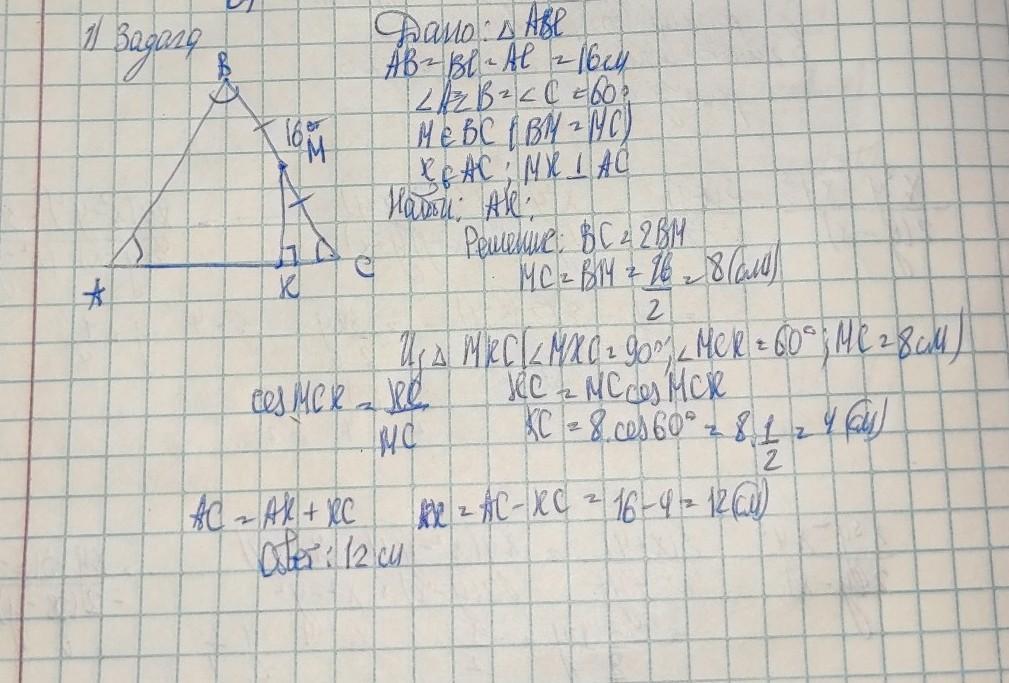 1) Задача
Дано: △ ABC
AB = BC = AC = 16см
∠A = B = ∠C = 60°
M ∈ BC (BM = MC)
K ∈ AC; MK ⊥ AC
Найти: AK;
B
16см
M
A
K
C
Решение: BC = 2BM
MC = BM = 16/2 = 8(см)
Из △ MKC (∠MKC = 90°; ∠MCK = 60°; MC = 8см)
cos MCK = KC/MC KC = MC cos MCK
KC = 8 · cos 60° = 8 · 1/2 = 4 (см)
AC = AK + KC AK = AC - KC = 16 - 4 = 12(см)
Ответ: 12 см